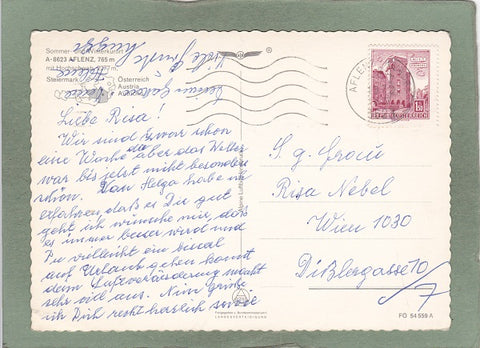 Sommer- und Winterkurort
A-8623 AFLENZ, 765 m
Steiermark
Österreich
Austria
Liebe Risa!
Wir sind zwar schon
eine Woche da aber das Wetter
war bis jetzt nicht besonders
schön. Von Helga habe ich
erfahren, daß es Dir gut
geht ich wünsche mir, daß
es immer besser wird und
Du vielleicht ein bissal
auf Urlaub gehen kannst
denn Luftveränderung macht
sehr viel aus. Nun grüße
ich Dich recht herzlich sowie
Viele Grüße
AFLENZ
REPUBLIK ÖSTERREICH
S. g. Frau
Risa Nebel
Wien 1030
Dißlergasse 10/
7
LANDESVERTEIDIGUNG
PG 54 559 A